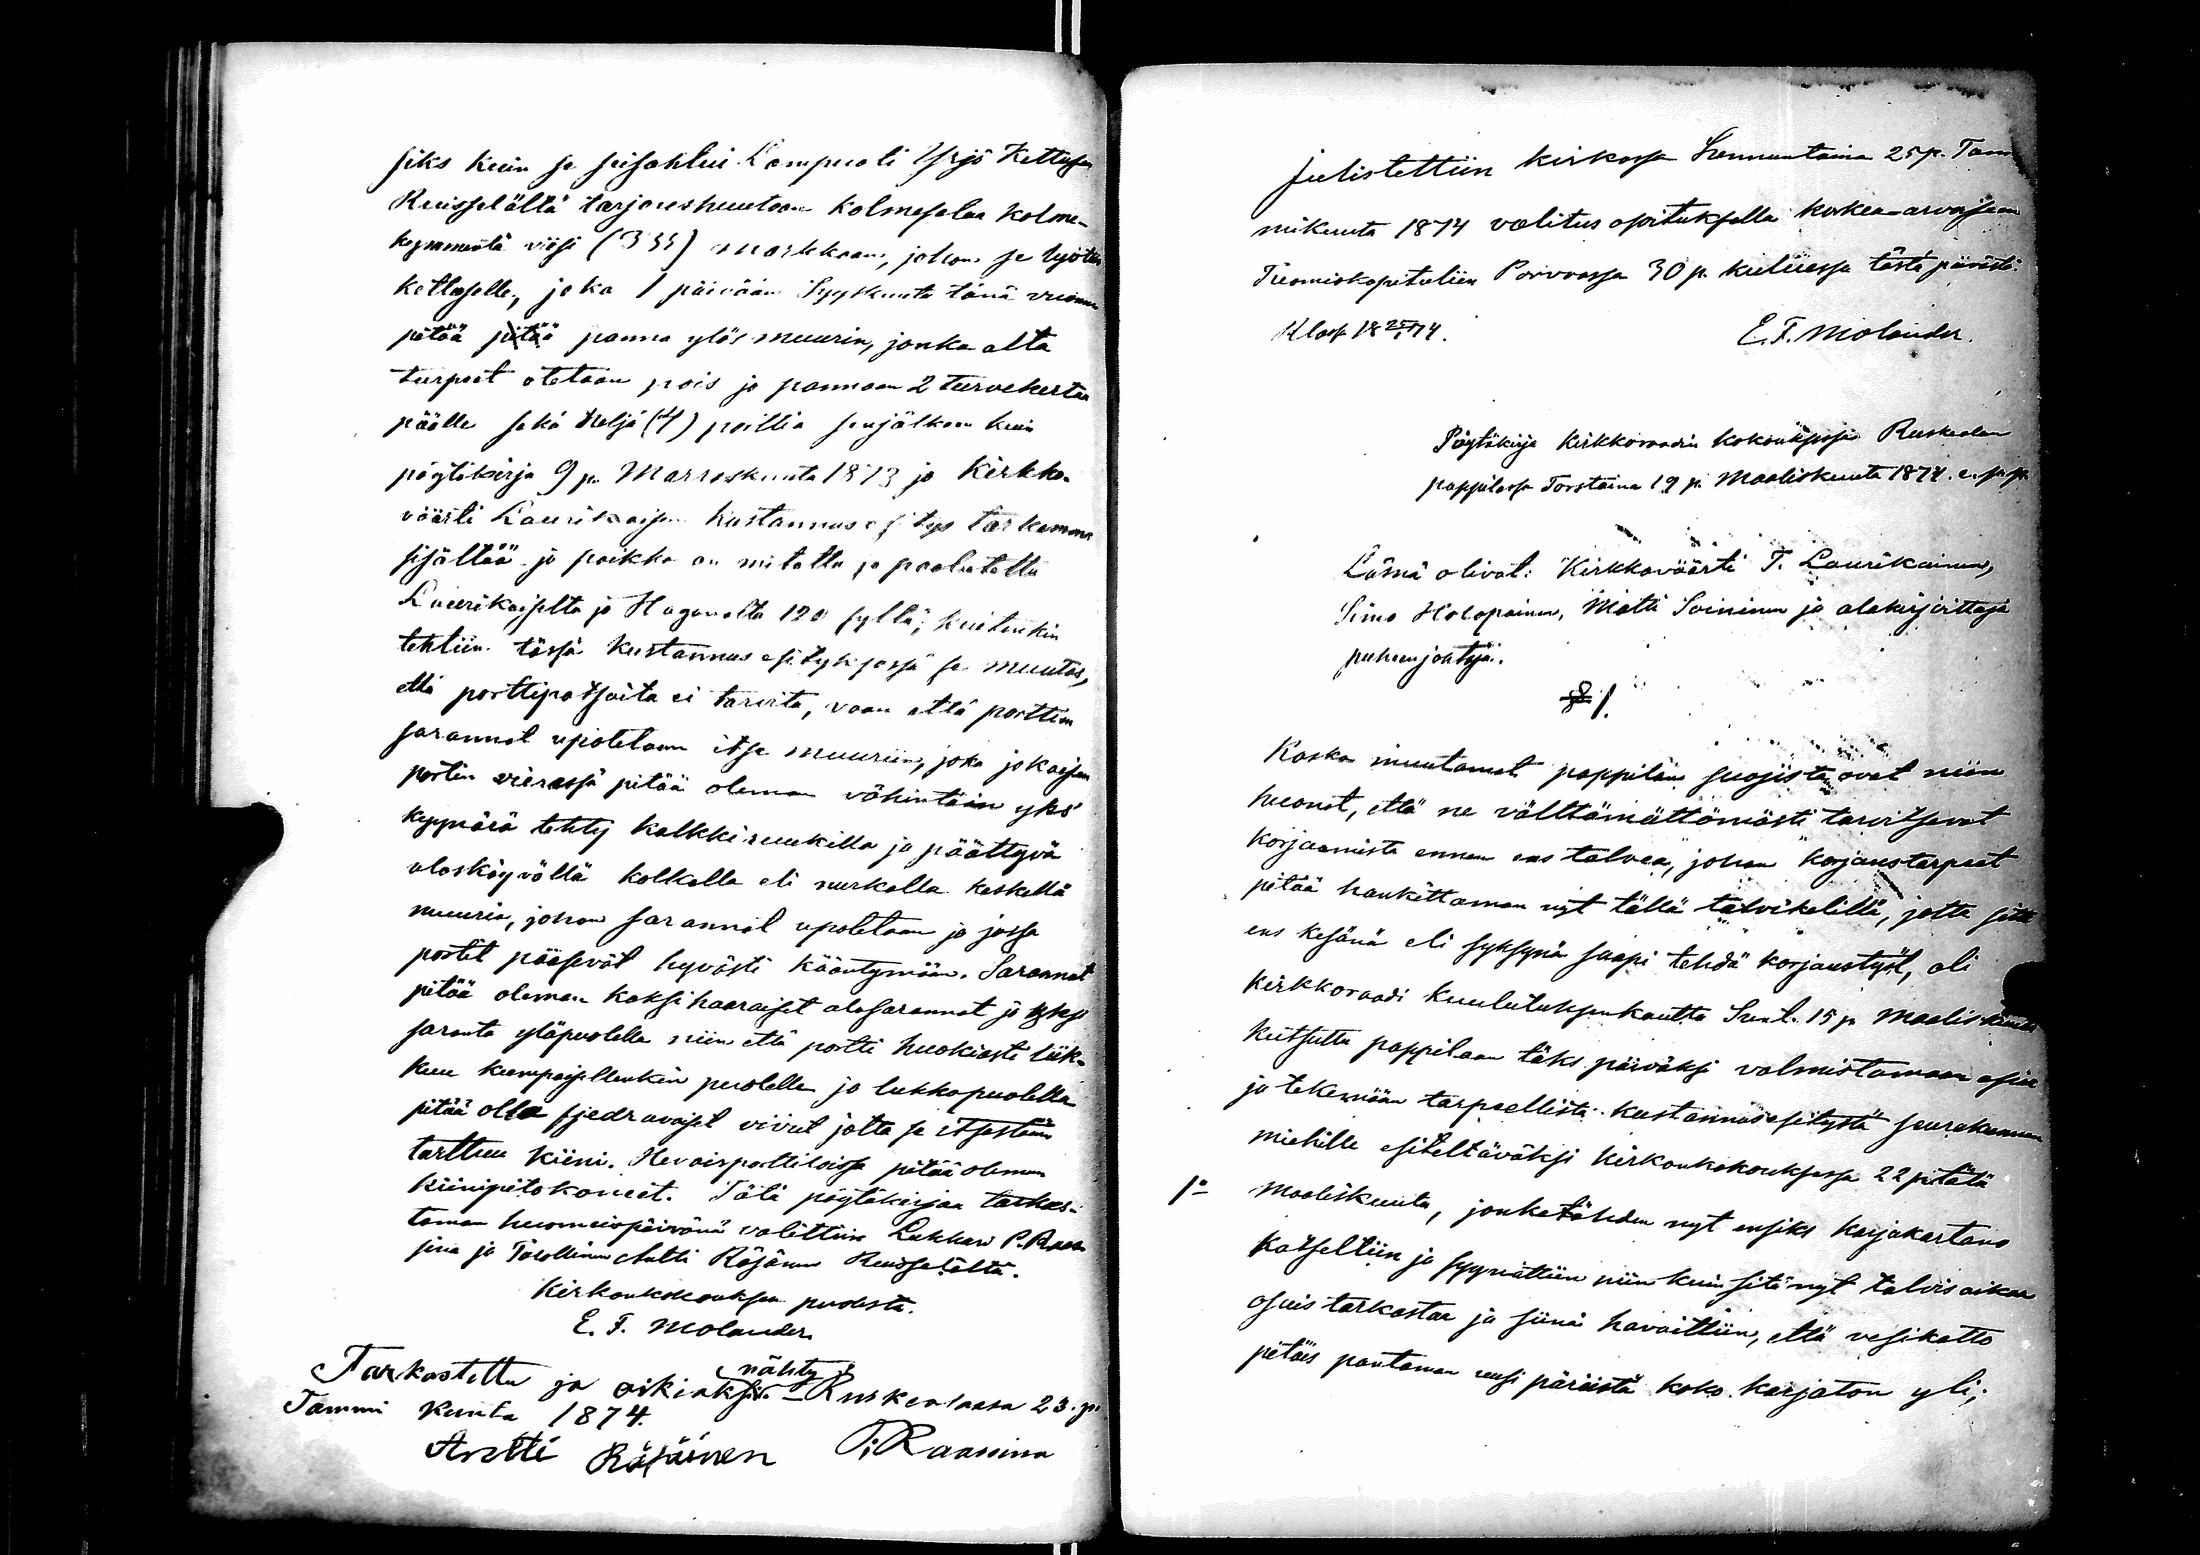 siks kuin se seisahtui Lampuoti Yrjö Kettusen
Ruisselältä tarjoushuutoon kolmesataa kolme-
kymmentä viisi (335) markkaan, johon se lyötiin
kettuselle, joka 1 päivään Syyskuuta tänä vuonna
pitää pitää panna ylös muurin, jonka alta
turpeet otetaan pois ja pannaan 2 turvekertaa
päälle sekä neljä (4) porttia senjälkeen kuin
pöytäkirja 9 p. Marraskuuta 1873 ja Kirkko-
väärti Laurikaisen kustannusesitys tarkemmin
sisältää ja paikka on mitattu ja paalutettu
Laurikaiselta ja Haganolta 120 syltä; kuitenkin
tehtiin tässä kustannusesityksessä se muutos,
että porttipatsaita ei tarvita, vaan että porttien
sarannat upotetaan itse muuriin, joka jokaisen
portin vieressä pitää oleman vähintään yks
kyynärä tehty kalkkiruukilla ja päättyvä
uloskäyvällä kolkalla eli nurkalla keskellä
muuria, johon sarannat upotetaan ja jossa
portit pääsevät hyvästi kääntymään. Sarannat
pitää oleman kaksihaaraiset alasarannat ja yksi
saranta yläpuolella niin että portti huokiasti liik-
kuu kumpaisellenkin puolelle ja lukkopuolella
pitää olla fjedravaset vivut jotta se itsestään
tarttuu kiini. Hevoisporttiloissa pitää oleman
kiinipitokoneet. Tätä pöytäkirjaa tarkas-
taman huomeispäivänä valittiin Lukkari P. Raas-
sina ja Talollinen Antti Räsänen Ruisselältä.
Kirkonkokouksen puolesta.
E. F. Molander
Tarkastettu ja oikiaksi nähty Ruskealassa 23. p.
Tammi kuuta 1874.
Antti Räsäinen P. Raassina
Julistettiin kirkossa Sunnuntaina 25 p. Tam-
mikuuta 1874 valitus opituksella korkea-arvoiseen
Tuomiokapituliin Porvoossa 30 p. kuluessa tästä päivästä.
E. F. Molander.
Pöytäkirja Kirkkoraadin kokouksessa Ruskealan
pappilassa Torstaina 19 p. Maaliskuuta 1874. e. pp.
Läsnä olivat: Kirkkoväärti T. Laurikainen,
Simo Holopainen, Matti Soininen ja alakirjoittaja
puheenjohtaja.
§ 1.
Koska muutamat pappilan suojista ovat niin
huonot, että ne välttämättömästi tarvitsevat
korjaamista ennen ens talvea, johon korjaustarpeet
pitää hankittaman nyt tällä talvikelillä, jotta sitte
ens kesänä eli syksynä saapi tehdä korjaustyöt, oli
Kirkkoraadi kuulutuksen kautta Sunt. 15 p. Maaliskuuta
kutsuttu pappilaan täks päiväksi valmistamaan asiaa
ja tekemään tarpeellista kustannusesitystä seurakunnan
miehille esiteltäväksi kirkonkokouksessa 22 p tätä
1o Maaliskuuta, jonkatähden nyt ensiks karjakartano
katseltiin ja syynättiin niin kuin sitä nyt talvisaikaan
osais tarkastaa ja siinä havaittiin, että vesikatto
pitäis pantaman uusi päreistä koko karjaton yli;